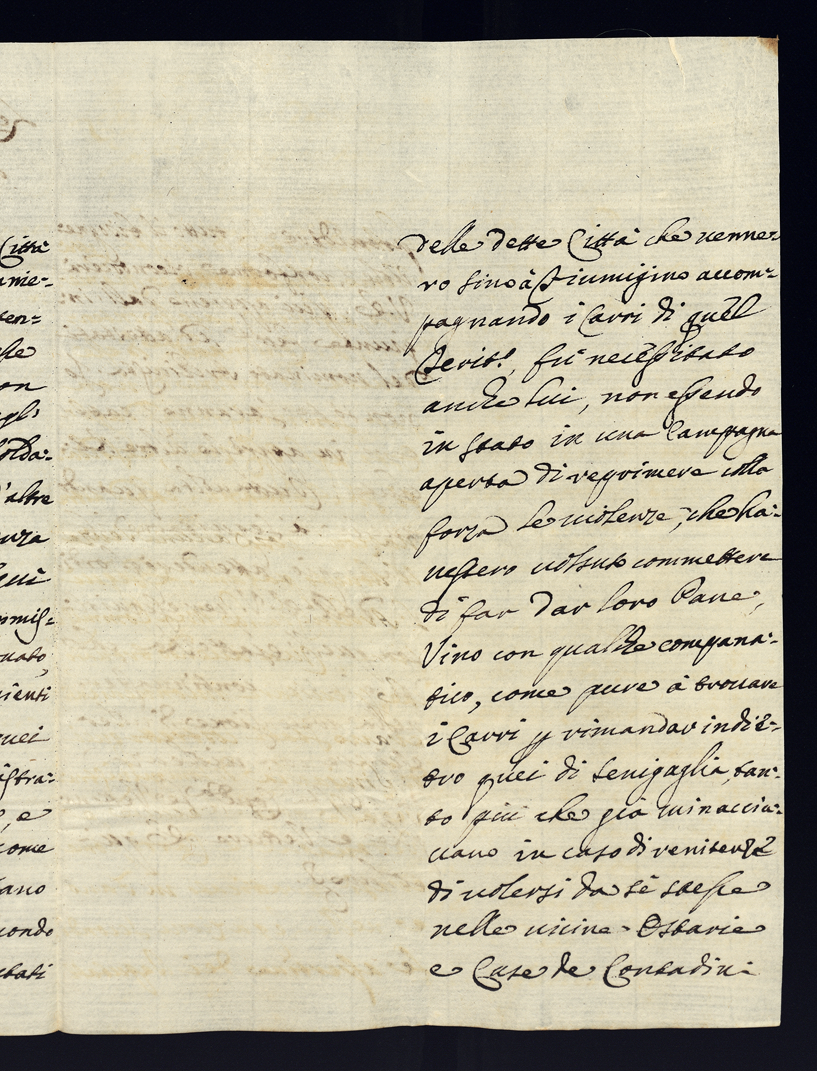 Città
anie-
ten-
se
on
gli
olda-
d'altre
nza
qui
mmis-
nato,
ienti
quei
istra-
, e
come
ano
ondo
tati
delle dette Città che venne-
ro sino à Fiumigino accom-
pagnando i Carri di quel
Territ.o, fù necessitato
anche lui, non essendo
in stato in una Campagna
aperta di reprimere colla
forza le violenze, che ha-
vessero voluto commettere
di far dar loro Pane,
Vino con qualche compana-
tico, come pure à trovare
i Carri p rimandar indie-
tro quei di Senigaglia, tan-
to più che già minaccia-
vano in caso di renitenza
di volersi da sè stesse
nelle vicine Ostarie
e Case de Contadini